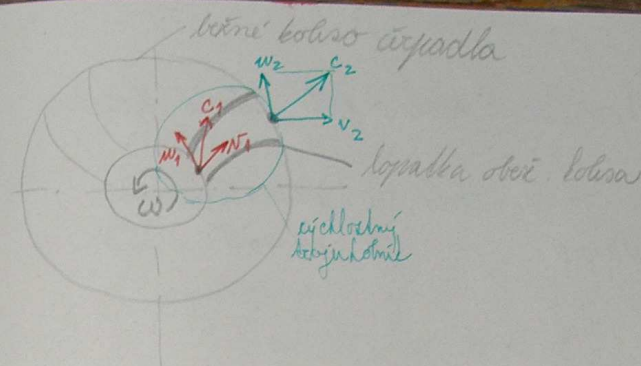 bežné koleso čerpadla
w2 c2
c1
v2
w1 v1
lopatka obež. kolesa
ω
rýchlostný
trojuholník